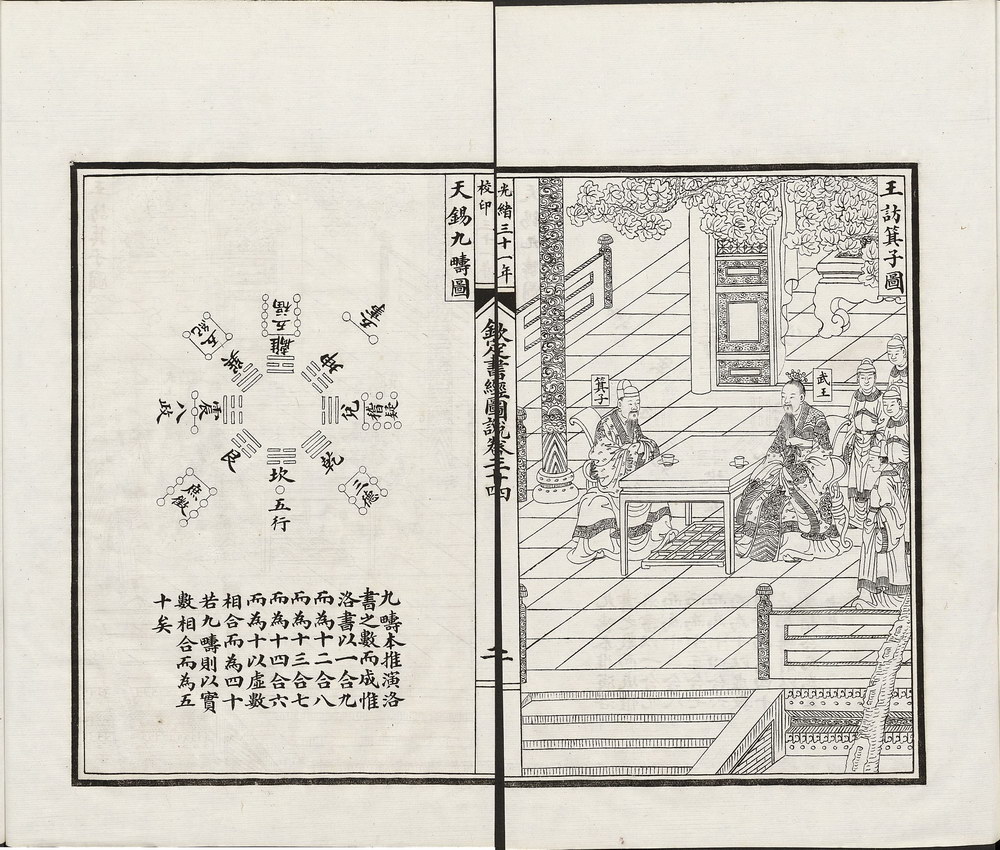 王訪箕子圖
武王
箕子
光緒三十一年
校印
欽定書經圖說卷
二
天錫九疇圖
離 五福
坤 五事
兌 稽疑
乾 三德
坎 五行
艮 庶徵
震 八政
巽 五紀
九疇本推演洛
書之數而成惟
洛書以一合九
而為十二合八
而為十三合七
而為十四合六
而為十以虛數
相合而為四十
若九疇則以實
數相合而為五
十矣